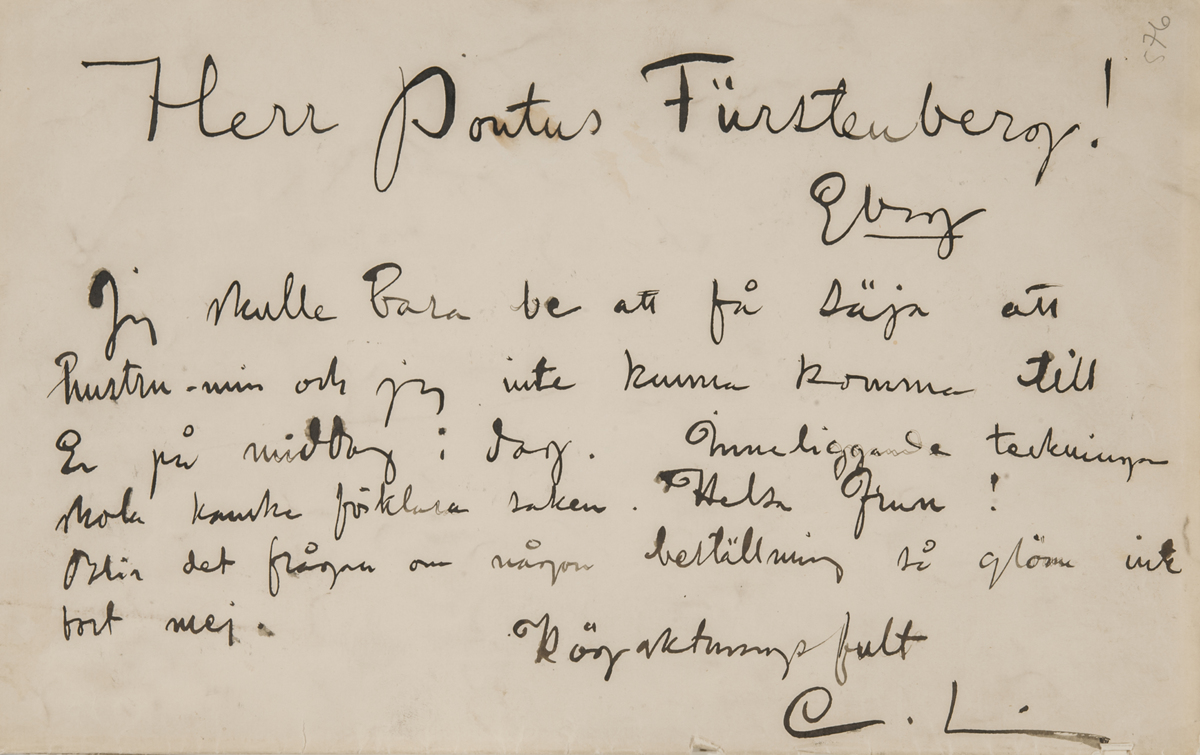 576
Herr Pontus Fürstenberg!
Gbrg
Jag skulle bara be att få säja att
hustru-min och jag inte kunna komma till
Er på middag i dag. Inneliggande teckningar
skola kanske förklara saken. Helsa Frun!
Blir det frågan om någon beställning så glöm inte
bort mej.
Högaktningsfult
C. L.